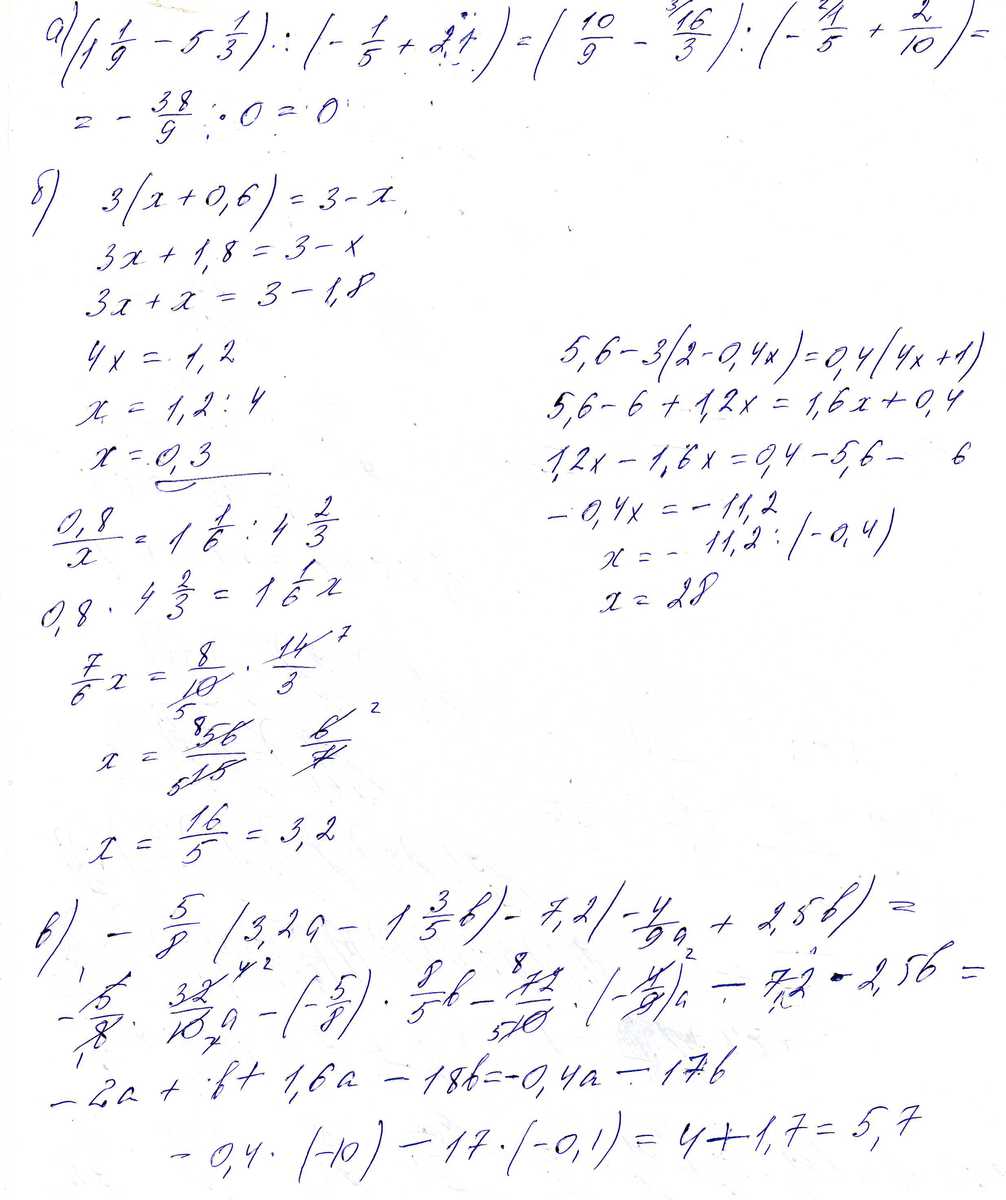 а) (1 1/9 - 5 1/3) : (- 1/5 + 2,1) = (10/9 - 16/3) : (- 1/5 + 2/10) =
= - 38/9 : 0 = 0
б) 3(x + 0,6) = 3 - x
3x + 1,8 = 3 - x
3x + x = 3 - 1,8
4x = 1,2
x = 1,2 : 4
x = 0,3
0,8/x = 1 1/6 : 4 2/3
0,8 · 4 2/3 = 1 1/6 x
7/6 x = 8/10 · 14/3
5 7
x = 56/15 · 6/7
8 5 2
x = 16/5 = 3,2
5,6 - 3(2 - 0,4x) = 0,4(4x + 1)
5,6 - 6 + 1,2x = 1,6x + 0,4
1,2x - 1,6x = 0,4 - 5,6 - 6
- 0,4x = - 11,2
x = - 11,2 : (-0,4)
x = 28
в) - 5/8 (3,2a - 1 3/5 b) - 7,2(- 4/9 a + 2,5b) =
- 5/8 · 32/10 a - (- 5/8) · 8/5 b - 72/10 · (- 4/9)a - 7,2 · 2,5b =
- 2a + b + 1,6a - 18b = -0,4a - 17b
- 0,4 · (-10) - 17 · (-0,1) = 4 + 1,7 = 5,7